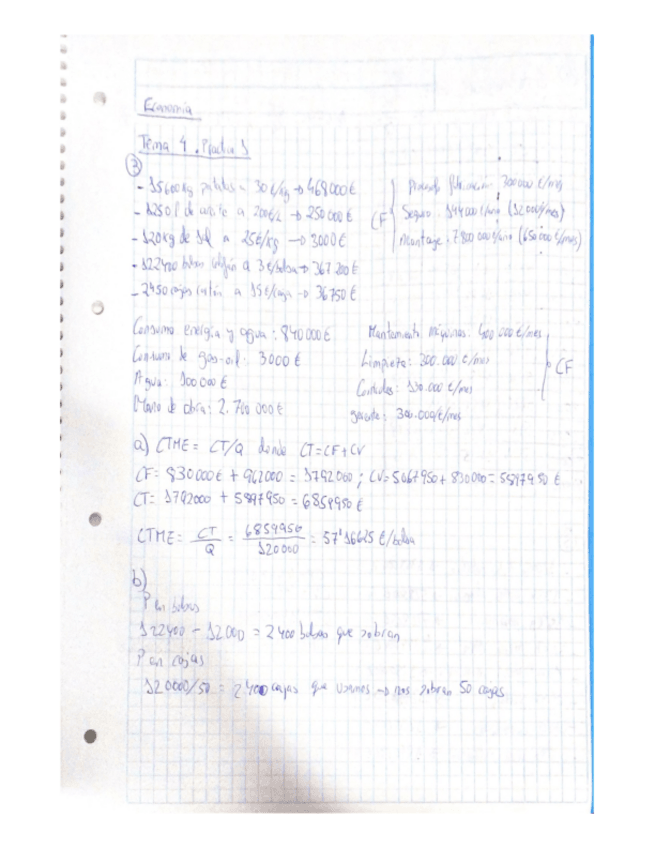 Economia
Tema 4. Practica 1
③
- 15600kg patatas a 30 €/kg → 468000 €
- 1250 l de aceite a 200€/l → 250 000 €
- 120kg de sal a 25€/kg → 3000 €
- 122400 bolsas a 3 €/bolsa → 367 200 €
- 2450 cajas cartón a 15 €/caja → 36750 €
CF
300 000 €/mes
Seguro: 144000 €/año (12000/mes)
Montaje: 7800 000 €/año (650 000 €/mes)
Consumo energía y agua: 840 000 €
Consumo de gas-oil: 3000 €
Agua: 100 000 €
Mano de obra: 2.700 000 €
Mantenimiento máquinas: 400 000 €/mes
Limpieza: 300.000 €/mes
130.000 €/mes
gerente: 300.000€/mes
CF
a) CTME = CT/Q donde CT = CF + CV
CF = 830000 € + 962000 = 1792000 ; CV = 5067950 + 830000 = 5897950 €
CT = 1792000 + 5897950 = 6859950 €
CTME = CT/Q = 6859950/120000 = 57'16625 €/bolsa
b)
P en bolsas
122400 - 12000 = 2400 bolsas que sobran
P en cajas
120000/50 = 2400 cajas que usamos → nos sobran 50 cajas